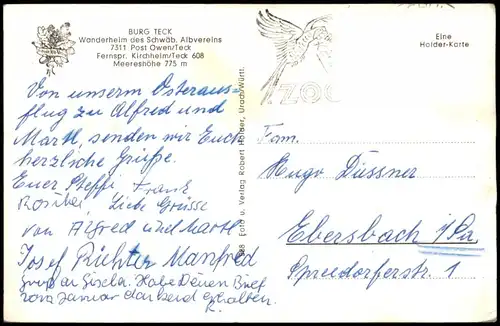 BURG TECK
Wanderheim des Schwäb. Albvereins
7311 Post Owen/Teck
Fernspr. Kirchheim/Teck 608
Meereshöhe 775 m
Eine
Holder-Karte
ZOO
Von unserm Osteraus-
flug zu Alfred und
Martl, senden wir Euch
herzliche Grüße.
Euer Steffi, Frank
Liebe Grüsse
von Alfred und Martl
Josef Richter Manfred
Gruß an Gisela. Habe Deinen Brief
vom Januar dankend erhalten.
R.
Foto u. Verlag Robert Holder, Urach/Württ.
Fam.
Hugo Düssner
Ebersbach i/Sa.
Spreedorferstr. 1